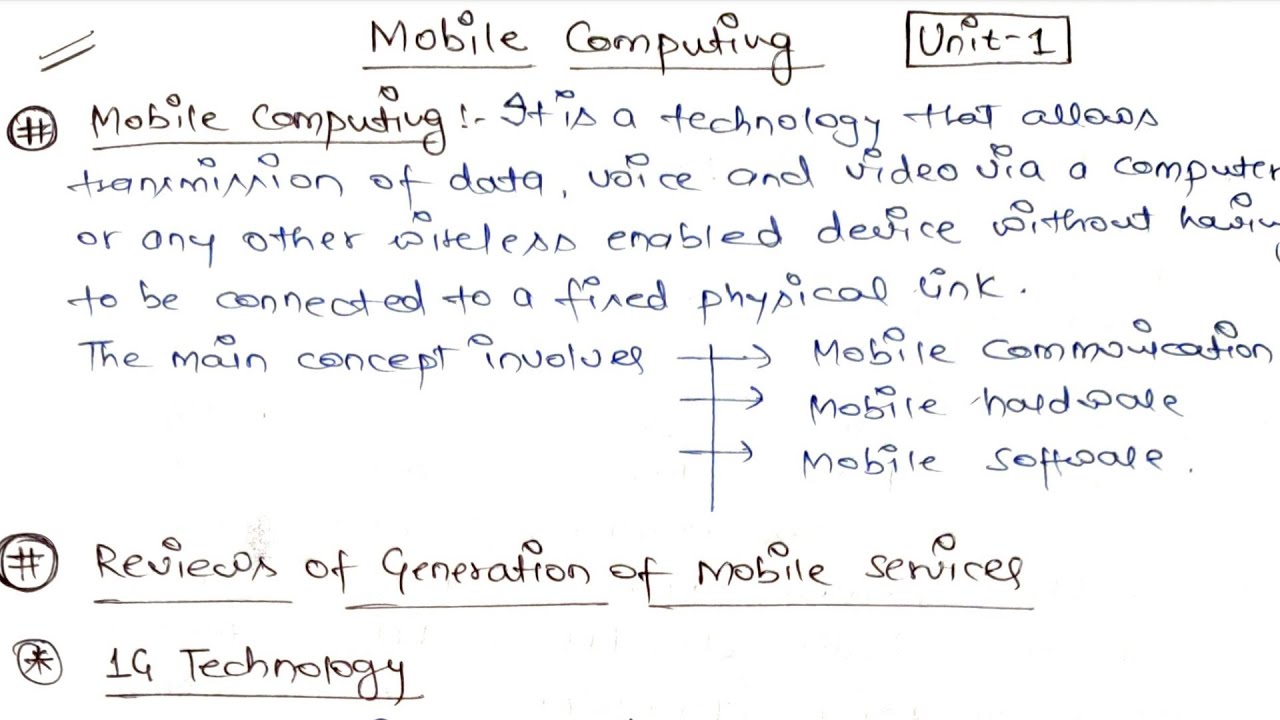 Mobile Computing Unit-1
# Mobile Computing :- It is a technology that allows
transmission of data, voice and video via a computer
or any other wireless enabled device without having
to be connected to a fixed physical link.
The main concept involves → Mobile Communication
→ Mobile hardware
→ Mobile software.
# Reviews of Generation of Mobile Services
* 1G Technology